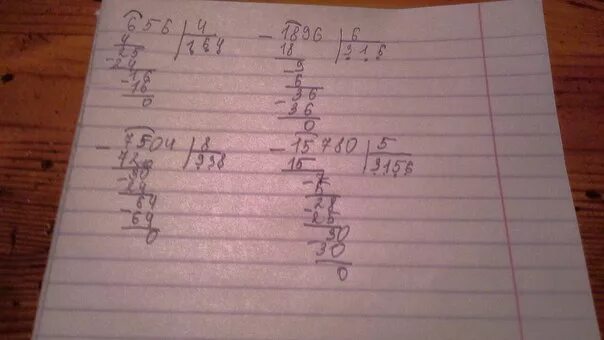 656 | 4
4 | 164
25
-24
16
-16
0
-1896 | 6
18 | 316
-9
6
36
-36
0
-7504 | 8
72 | 938
-30
24
64
-64
0
-15780 | 5
15 | 3156
-7
5
-28
25
30
-30
0